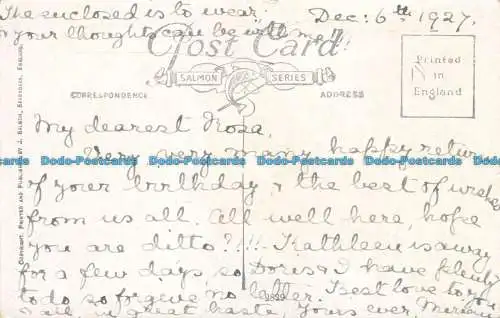 The enclosed is to wear,
Dec: 6th 1927.
& your thoughts can be with me!!
Post Card
SALMON SERIES
CORRESPONDENCE
ADDRESS
Printed
in
England
My dearest Rosa,
Very very many happy returns
Dodo-Postcards Dodo-Postcards Dodo-Postcards Dodo-Postcards Dodo-Postcards
of your birthday & the best of wishes
from us all. All well here, hope
you are ditto?!!! Kathleen is away
for a few days, so Doris & I have plenty
to do so forgive no letter. Best love to you
& all, in great haste, yours ever,
COPYRIGHT. PRINTED AND PUBLISHED BY J. SALMON, SEVENOAKS, ENGLAND.